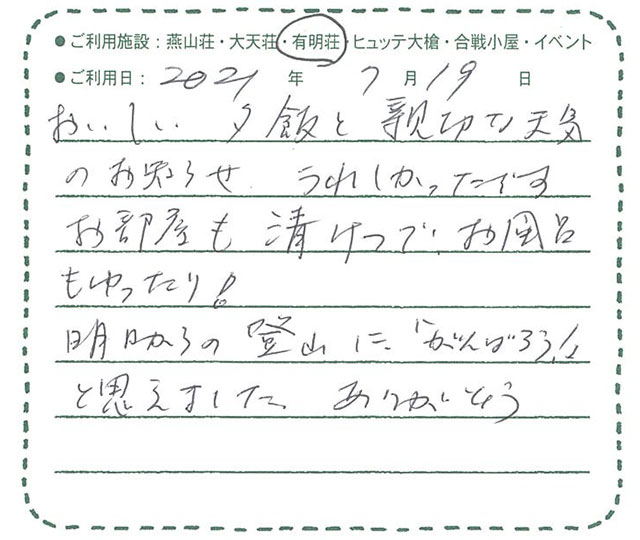 ●ご利用施設：燕山荘・大天荘・有明荘・ヒュッテ大槍・合戦小屋・イベント
●ご利用日：2021年 7月19日
おいしい夕飯と親切な天気
のお知らせ うれしかったです
お部屋も清けつで、お風呂
もゆったり!
明日からの登山に、"がんばろう!"
と思えました。ありがとう